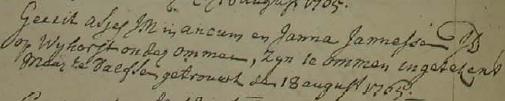 16 august 1765.
Gerrit asjes JM in ancum en Janna Jannessen JD
op Wyhorst onder ommen, zyn te ommen ingetekent
Maar te Dalfsen getrouwt den 18 august 1765.